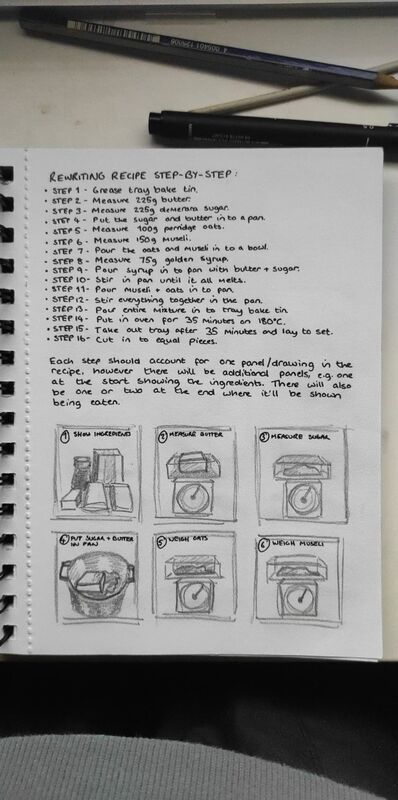 4 005401 129006
REWRITING RECIPE STEP-BY-STEP:
• STEP 1 - Grease tray bake tin.
• STEP 2 - Measure 225g butter.
• STEP 3 - Measure 225g demerara sugar.
• STEP 4 - Put the sugar and butter in to a pan.
• STEP 5 - Measure 100g porridge oats.
• STEP 6 - Measure 150g Museli.
• STEP 7 - Pour the oats and museli in to a bowl.
• STEP 8 - Measure 75g golden syrup.
• STEP 9 - Pour syrup in to pan with butter + sugar.
• STEP 10 - Stir in pan until it all melts.
• STEP 11 - Pour museli + oats in to pan.
• STEP 12 - Stir everything together in the pan.
• STEP 13 - Pour entire mixture in to tray bake tin.
• STEP 14 - Put in oven for 35 minutes on 180°C.
• STEP 15 - Take out tray after 35 minutes and lay to set.
• STEP 16 - Cut in to equal pieces.
Each step should account for one panel/drawing in the
recipe, however there will be additional panels, e.g. one
at the start showing the ingredients. There will also
be one or two at the end where it'll be shown
being eaten.
1 SHOW INGREDIENTS
2 MEASURE BUTTER
3 MEASURE SUGAR
4 PUT SUGAR + BUTTER
IN PAN
5 WEIGH OATS
6 WEIGH MUSELI